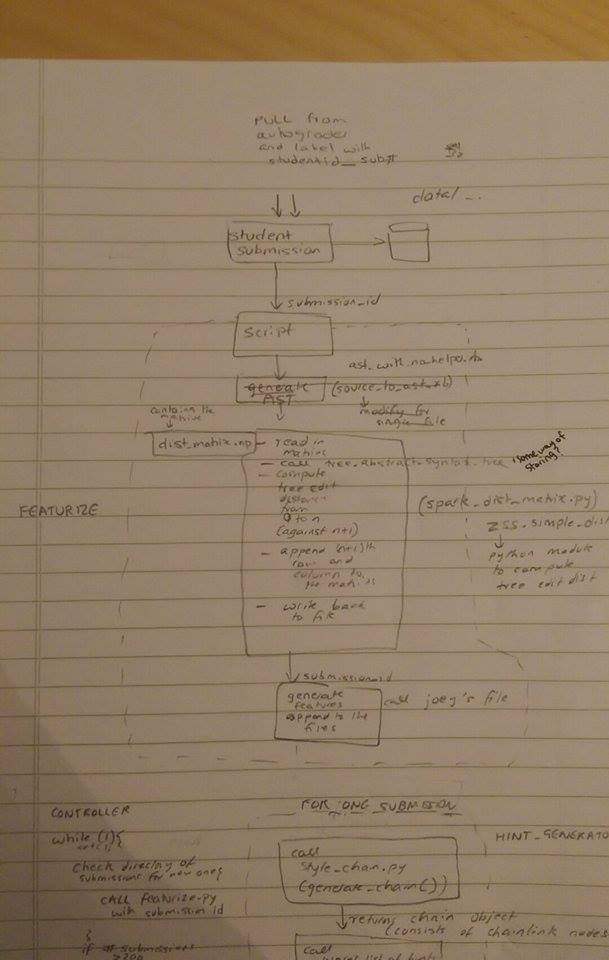 PULL from
autograder
and label with
studentid_sub#
data/...
student
submission
submission_id
script
ast_with_no_helper.rb
generate
AST
(source_to_ast.rb)
modify for
single file
containing the
matrix
dist_matrix.np
- read in
matrix
- call tree_abstract_syntax_tree
- compute
tree edit
distance
from
0 to n
(against n+1)
- append (n+1)th
row and
column to
the matrix
- write back
to file
some way of
storing?
(spark_dist_matrix.py)
zss.simple_dist
python module
to compute
tree edit dist
FEATURIZE
submission_id
generate
features
append to the
files
call joey's file
CONTROLLER
while (1){
check directory of
submissions for new one{
CALL featurize.py
with submission id
}
if # submissions
>200
FOR ONE SUBMISSION
HINT_GENERATO
call
style_chain.py
(generate_chain())
returns chain object
(consists of chainlink nodes
call
list of hints